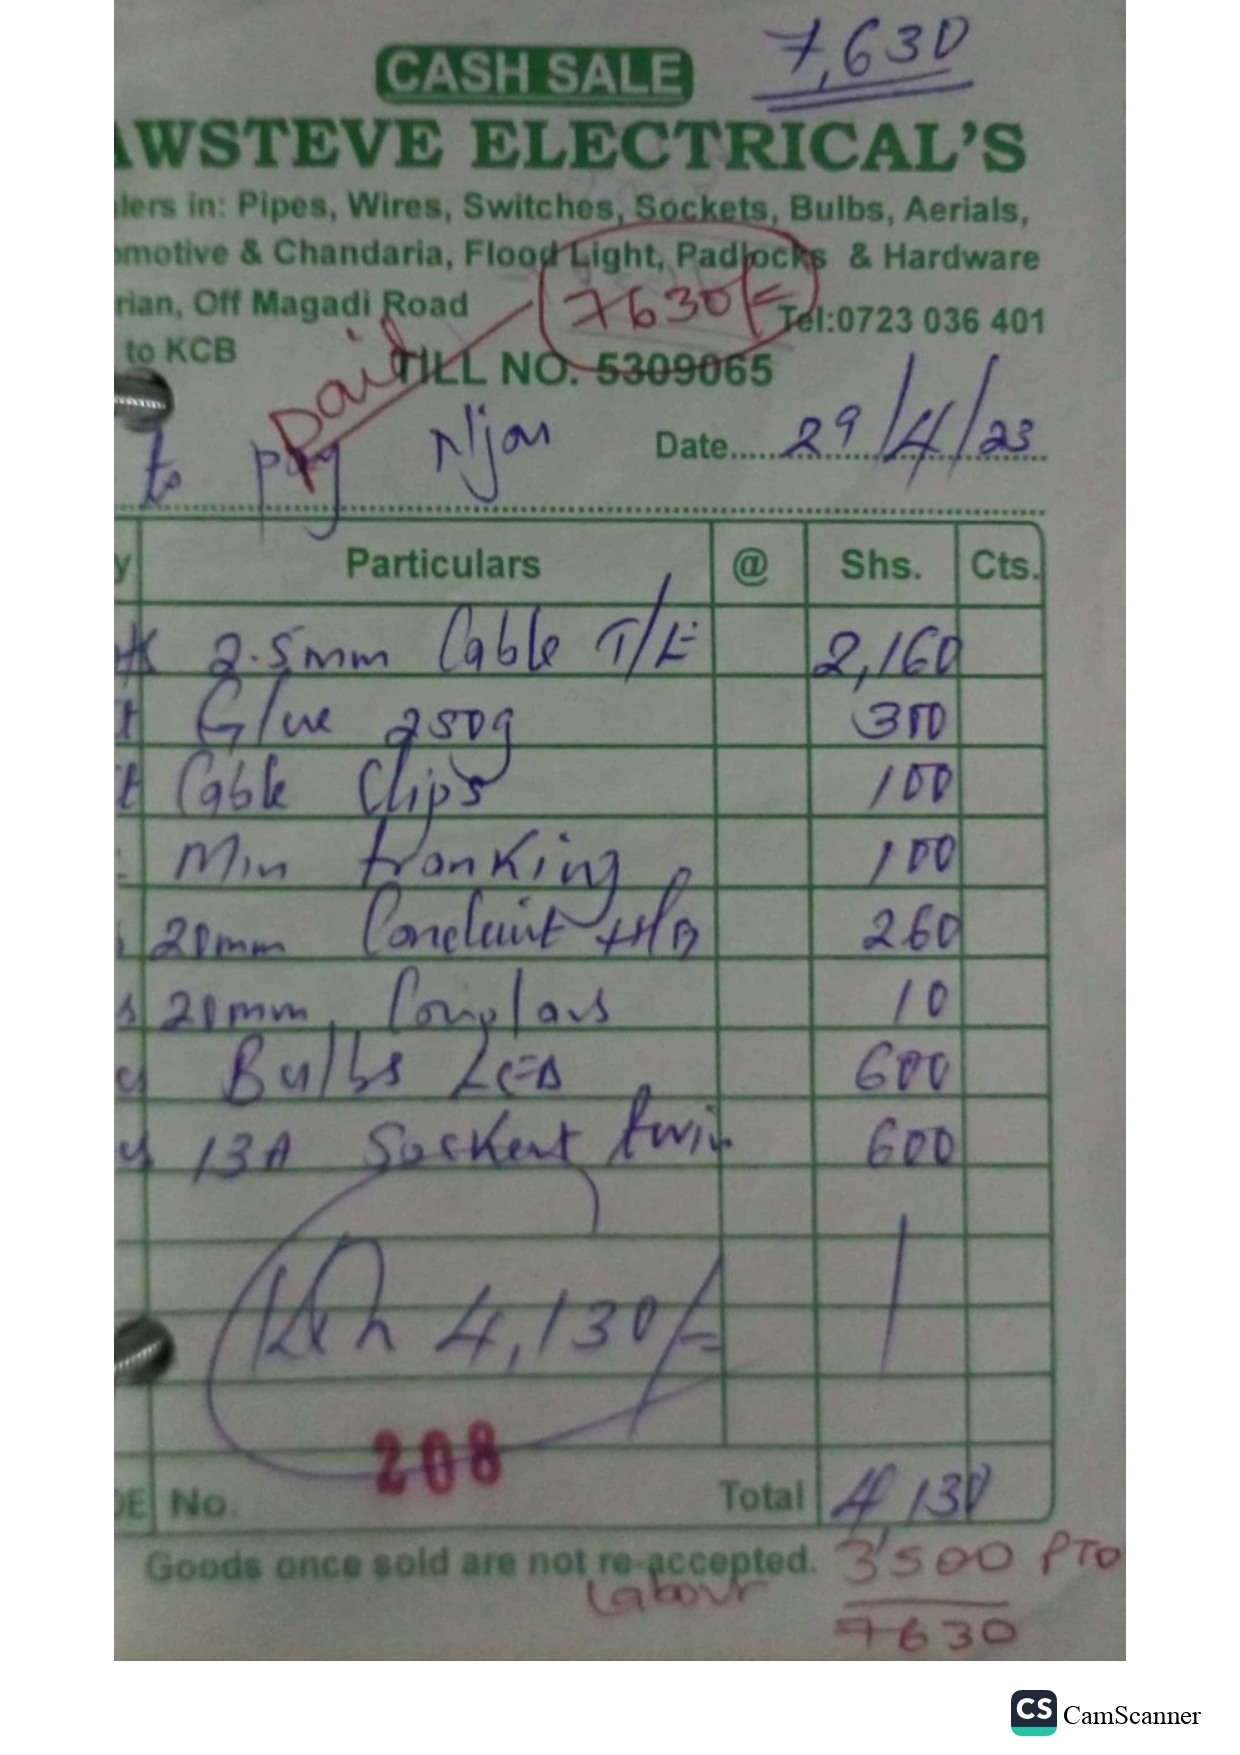 7,630
CASH SALE
AWSTEVE ELECTRICAL'S
lers in: Pipes, Wires, Switches, Sockets, Bulbs, Aerials,
omotive & Chandaria, Flood Light, Padlocks & Hardware
rian, Off Magadi Road
7630/=
Tel:0723 036 401
to KCB
paid
TILL NO. 5309065
to pay Njau
Date 29/4/23
y Particulars @ Shs. Cts.
2.5mm Cable T/E 2,160
t Glue 250g 300
t Cable Clips 100
Min tranking 100
20mm Conduit H/B 260
s 20mm 10
Bulbs LED 600
13A Sockent twin 600
Ksh 4,130/=
208
OE No.
Total 4,130
Goods once sold are not re-accepted.
3500 PTO
Labour
7630
CS CamScanner